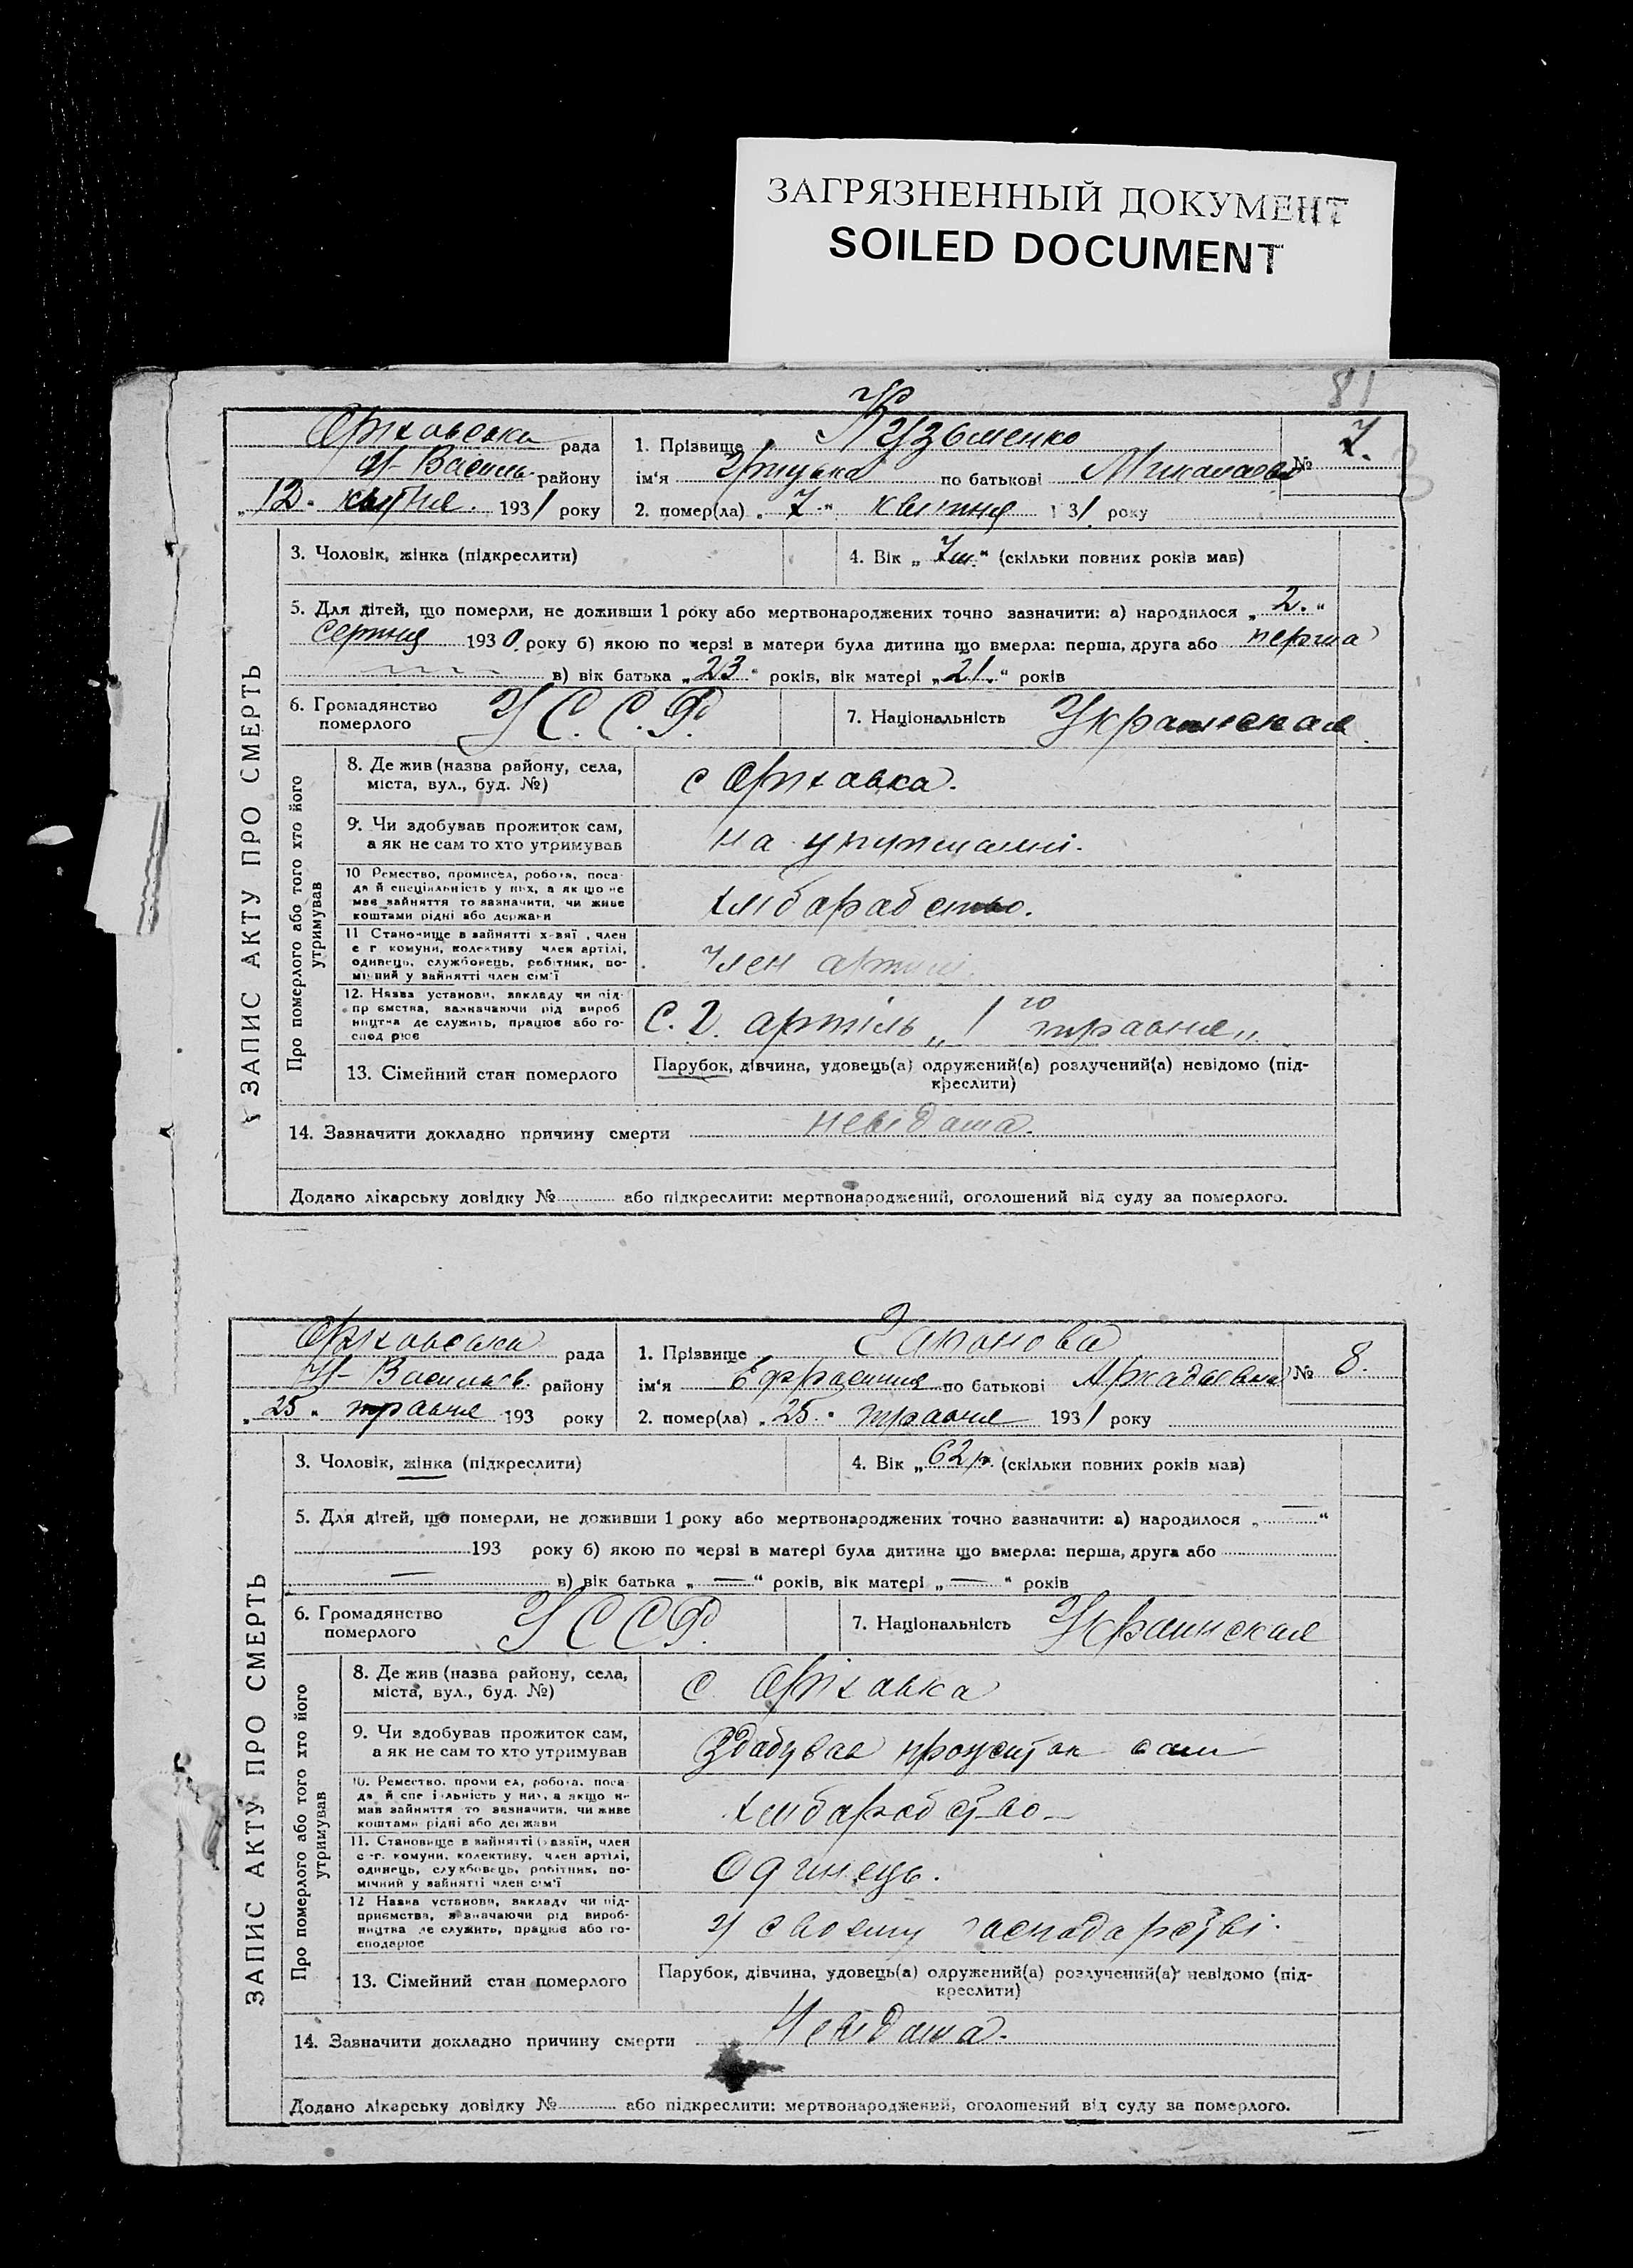 ЗАГРЯЗНЕННЫЙ ДОКУМЕНТ
SOILED DOCUMENT
81
ЗАПИС АКТУ ПРО СМЕРТЬ
Оріховська рада
Н-Василь. району
„12. квітня. 1931 року
1. Прізвище Кузьменко
№ 7.
ім‘я Грицько по батькові Микалаєв
2. помер(ла) „7.“ квітня 131 року
3. Чоловік, жінка (підкреслити)
4. Вік „7м.“ (скільки повних років мав)
5. Для дітей, що померли, не доживши 1 року або мертвонароджених точно зазначити: а) народилося „2.“
серпня 1930 року б) якою по черзі в матери була дитина що вмерла: перша, друга або перша
в) вік батька „23“ років, вік матері „21.“ років
6. Громадянство померлого У С. С. Р.
7. Національність Украинская
Про померлого або того хто його утримував
8. Де жив (назва району, села,
міста, вул., буд. №)
с Оріхавка.
9. Чи здобував прожиток сам,
а як не сам то хто утримував
на утриманні.
10 Ремество, промисел, робота, поса-
да й спеціяльність у них, а якщо не
мав зайняття то зазначити, чи живе
коштами рідні або держави
хлібарабство.
11 Становище в зайнятті хазяї, член
с г комуни, колективу член артілі,
одинець, службовець, робітник, по-
мічний у зайнятті член сім‘ї
Член артілі.
12. Назва установи, закладу чи під-
приємства, зазначаючи рід вироб
ництва де служить, працює або го-
спод рює
С. Г. артіль „1го травня„
13. Сімейний стан померлого
Парубок, дівчина, удовець(а) одружений(а) розлучений(а) невідомо (під-
креслити)
14. Зазначити докладно причину смерти невідома.
Додано лікарську довідку № або підкреслити: мертвонароджений, оголошений від суду за померлого.
ЗАПИС АКТУ ПРО СМЕРТЬ
Оріховська рада
Н-Васильів. району
„25„ травня 193 року
1. Прізвище Гапонова
№ 8.
ім‘я Ефросиния по батькові Аркадьевна
2. помер(ла) „25.“ травня 1931 року
3. Чоловік, жінка (підкреслити)
4. Вік „62р. (скільки повних років мав)
5. Для дітей, що померли, не доживши 1 року або мертвонароджених точно зазначити: а) народилося „—“
193 року б) якою по черзі в матері була дитина що вмерла: перша, друга або
— в) вік батька „—“ років, вік матері „—“ років
6. Громадянство померлого У С С Р.
7. Національність Украинская
Про померлого або того хто його утримував
8. Де жив (назва району, села,
міста, вул., буд. №)
с Оріхавка
9. Чи здобував прожиток сам,
а як не сам то хто утримував
Здабував прожиток сам
10. Ремество, проми ел, робота, поса-
да й спе і льність у них, а якщо не
мав зайняття то зазначити, чи живе
коштами рідні або держави
хлібарабство
11. Становище в зайнятті (хазяїн, член
с-г. комуни, колективу, член артілі,
одинець, службовець, робітник, по-
мічний у зайнятті член сім‘ї
Одинець.
12 Назва установи, закладу чи під-
приємства, зазначаючи рід вироб-
ництва де служить, працює або го-
сподарює
у своєму госпадарстві.
13. Сімейний стан померлого
Парубок, дівчина, удовець(а) одружений(а) розлучений(а) невідомо (під-
креслити)
14. Зазначити докладно причину смерти Невідома.
Додано лікарську довідку № або підкреслити: мертвонароджений, оголошений від суду за померлого.